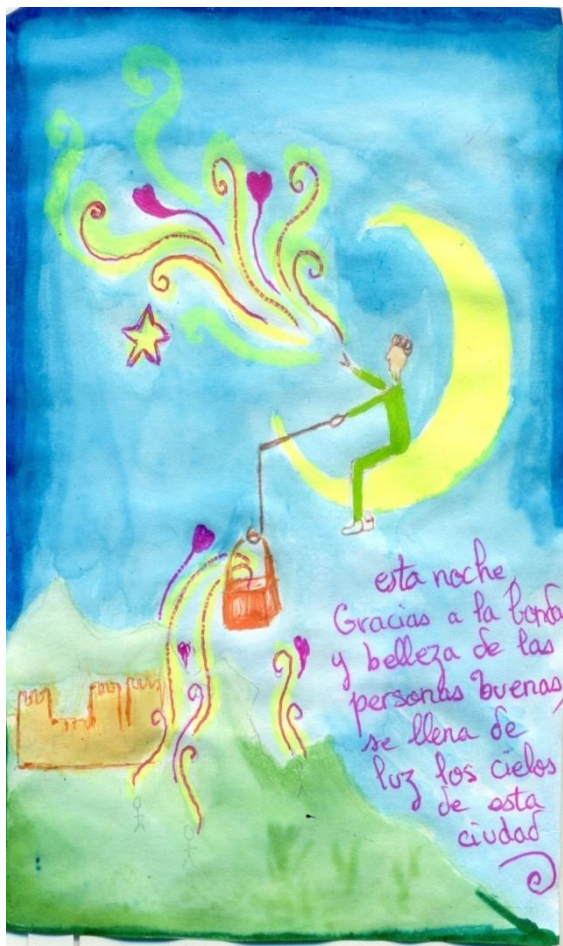 esta noche,
Gracias a la bonda
y belleza de las
personas buenas,
se llena de
luz los cielos
de esta
ciudad